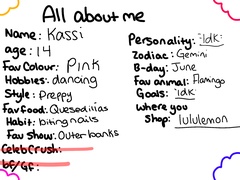 All about me
Name: Kassi
age: 14
Fav Colour: Pink
Hobbies: dancing
Style: preppy
Fav Food: Quesedillas
Habit: biting nails
Fav Show: Outer banks
Celeb Crush:
bf/Gf:
Personality: Idk
Zodiac: Gemini
B-day: June
Fav animal: Flamingo
Goals: idk
where you
Shop: lululemon